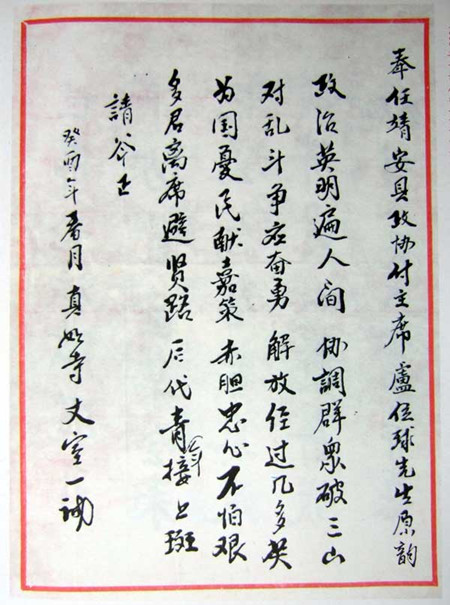 奉任靖安县政协付主席盧伍球先生原韵
政治英明遍人间 协調群眾破三山
对乱斗争应奋勇 解放经过几多关
为国憂民献嘉策 赤胆忠心不怕艰
多君离席避贤路 后代青年接上班
請斧正
癸酉年春月真如寺丈室一诚